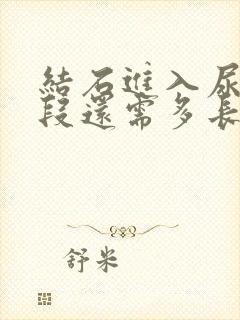 結石進入尿
段還需多長
舒米